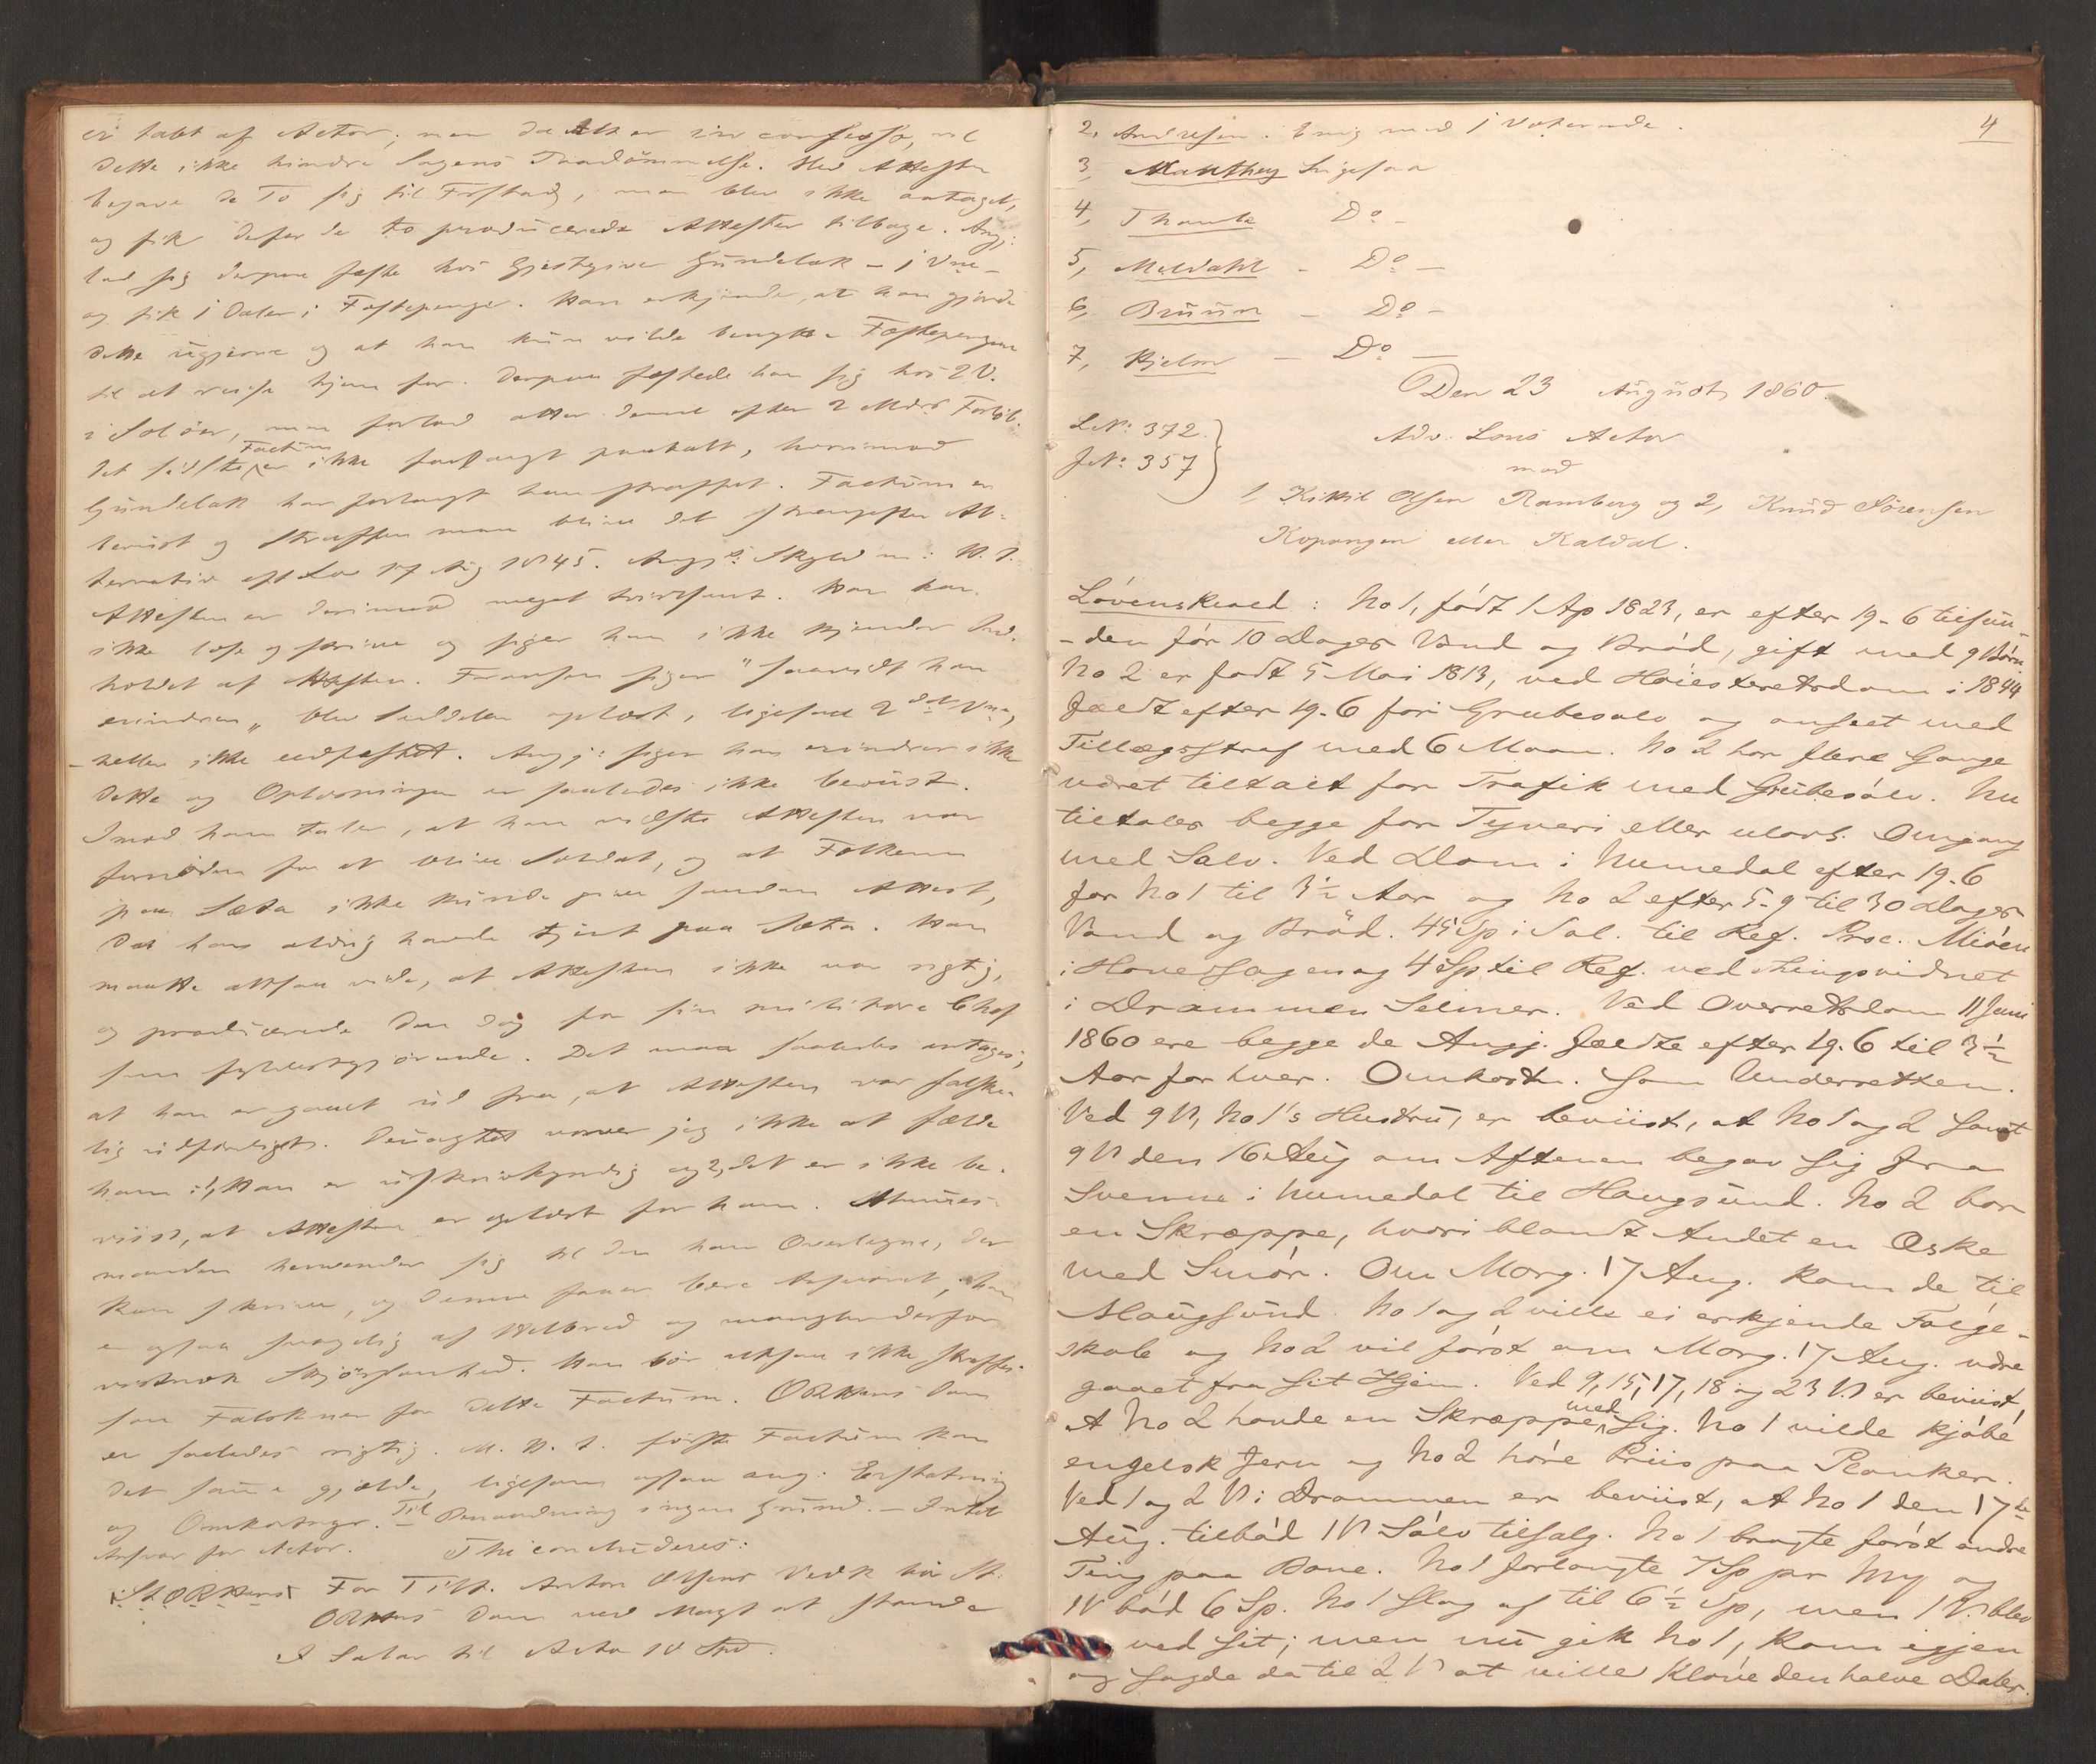 ei talt af Actor; men da Alt er in confesso, vil
dette ikke hindre Sagens Paadømmelse. Med Attesten
begave de To sig til Fr.stad, men blev ikke antaget,
og fik derfor de to producerede Attester tilbage. Ang:
lod sig derpaa fæste hos Gjestgiver Gundelak - 1 Vne -
og fik 1 Daler i Fæstepenge. Han erkjender, at han gjorde
dette ugjerne og at han kun vilde benytte Fæstepengene
til at reise hjem for. Derpaa fæstede han sig hos 2 V.
i Soløer, men forlod atter denne efter 2 Mdrs Forløb.
Det sidste Factum er ikke forlangt paatalt, hvorimod
Gundelak har forlangt ham straffet. Factum er
beviist og Straffen maa blive det strengeste Al-
ternativ eft Lov 17 Aug 1845. Angj: Skyld m: H. t.
Attesten er derimod meget tvivlsomt. Han kan
ikke læse og skrive og siger han ikke kjender Ind-
holdet af Attesten. Fransen siger "saavidt han
erindrer" blev Seddelen oplæst, ligesaa 2det Vne,
heller ikke edfæstet. Angj: siger han erindrer ikke
dette og Oplæsningen er saaledes ikke beviist.
Imod ham taler, at han vidste Attesten var
fornøden for at blive Soldat, og at Folkene
paa Sæta ikke kunde give saadan Attest,
da han aldrig havde tjent paa Sæta. Han
maatte altsaa vide, at Attesten ikke var rigtig,
og producerede den dog for sin militære Chef
som fyldestgjørende. Det maa saaledes antages,
at han er gaaet ud fra, at Attesten var falske-
lig udfærdiget. Desuagtet vover jeg ikke at fælde
ham: 1, Han er uskrivkyndig og 2, det er ikke be-
viist, at Attesten er oplæst for ham. Almues-
manden henvender sig til den ham Overlegne, der
kan skrive, og denne faaer bære Ansvaret, han
er ogsaa svagelig af Helbred og mangler derfor
vistnok Skjønsomhed. Han bør altsaa ikke straffes
som Falskner for dette Factum. ORttens Dom
er saaledes rigtig. M. H. t. første Factum kan
det samme gjælde, ligesom ogsaa ang: Erstatning
og Omkostninger. Til Benaadning ingen Grund. - Intet
Ansvar for Actor. Thi concluderes:
St. ORttens For Tilt. Anton Olsens Vedk bør St.
ORttens Dom ved Magt at stande
I Salar til Actor 10 Spd.
4
2, Andresen. Enig med 1 Voterende.
3, Manthey Ligesaa
4, Thaule Do -
5, Meldahl - Do -
6, Bruun - Do -
7, Hjelm - Do -
Den 23 August 1860.
L.No: 372.
J.No: 357
Adv. Lous Actor
mod
1, Kittil Olsen Ramberg og 2, Knud Sørensen
Kopangen eller Kaldal.
Løvenskiold: No 1, født 1 Ap 1823, er efter 19-6 tilfun-
-den før 10 Dages Vand og Brød, gift med 9 Børn.
No 2 er født 5 Mai 1813, ved Høiesteretsdom i 1844
fældt efter 19-6 for Grubesølv og anseet med
Tillægsstraf med 6 Maan. No 2 har flere Gange
været tiltalt for Trafik med Grubesølv. Nu
tiltales begge for Tyveri eller ulovl. Omgang
med Sølv. Ved Dom i Numedal efter 19-6
for No 1 til 3½ Aar og No 2 efter 5-9 til 30 Dages
Vand og Brød. 45 Sp i Sal. til Ref. Proc. Miøen
i Hovedsagen og 4 Sp til Ref. ved Thingsvidnet
i Drammen Selmer. Ved Overretsdom 11 Juni
1860 ere begge de Angj. fældte efter 19-6 til 3½
Aar for hver. Omkostn. som Underretten.
Ved 9 V, No 1's Hustru, er beviist, at No 1 og 2 samt
9 V den 16 Aug om Aftenen begav sig fra
Svenne i Numedal til Haugsund. No 2 bar
en Skræppe, hvori blandt Andet en Æske
med Smør. Om Morg. 17 Aug. kom de til
Haugsund. No 1 og 2 ville ei erkjende Følge-
skab og No 2 vil først om Morg. 17 Aug. være
gaaet fra sit Hjem. Ved 9, 15, 17, 18 og 23 V. er beviist,
at No 2 havde en Skræppe med sig. No 1 vilde kjøbe
engelsk Jern og No 2 høre Priis paa Planker.
Ved 1 og 2 V i Drammen er beviist, at No 1 den 17de
Aug. tilbød 1 V Sølv tilsalg. No 1 bragte først andre
Ting paa Bane. No 1 forlangte 7 Sp pr Mrg og
1 V bød 6 Sp. No 1 slog af til 6½ Sp, men 1 V. blev
ved sit; men nu gik No 1, kom igjen
og sagde da til 2 V at ville kløve den halve Daler.